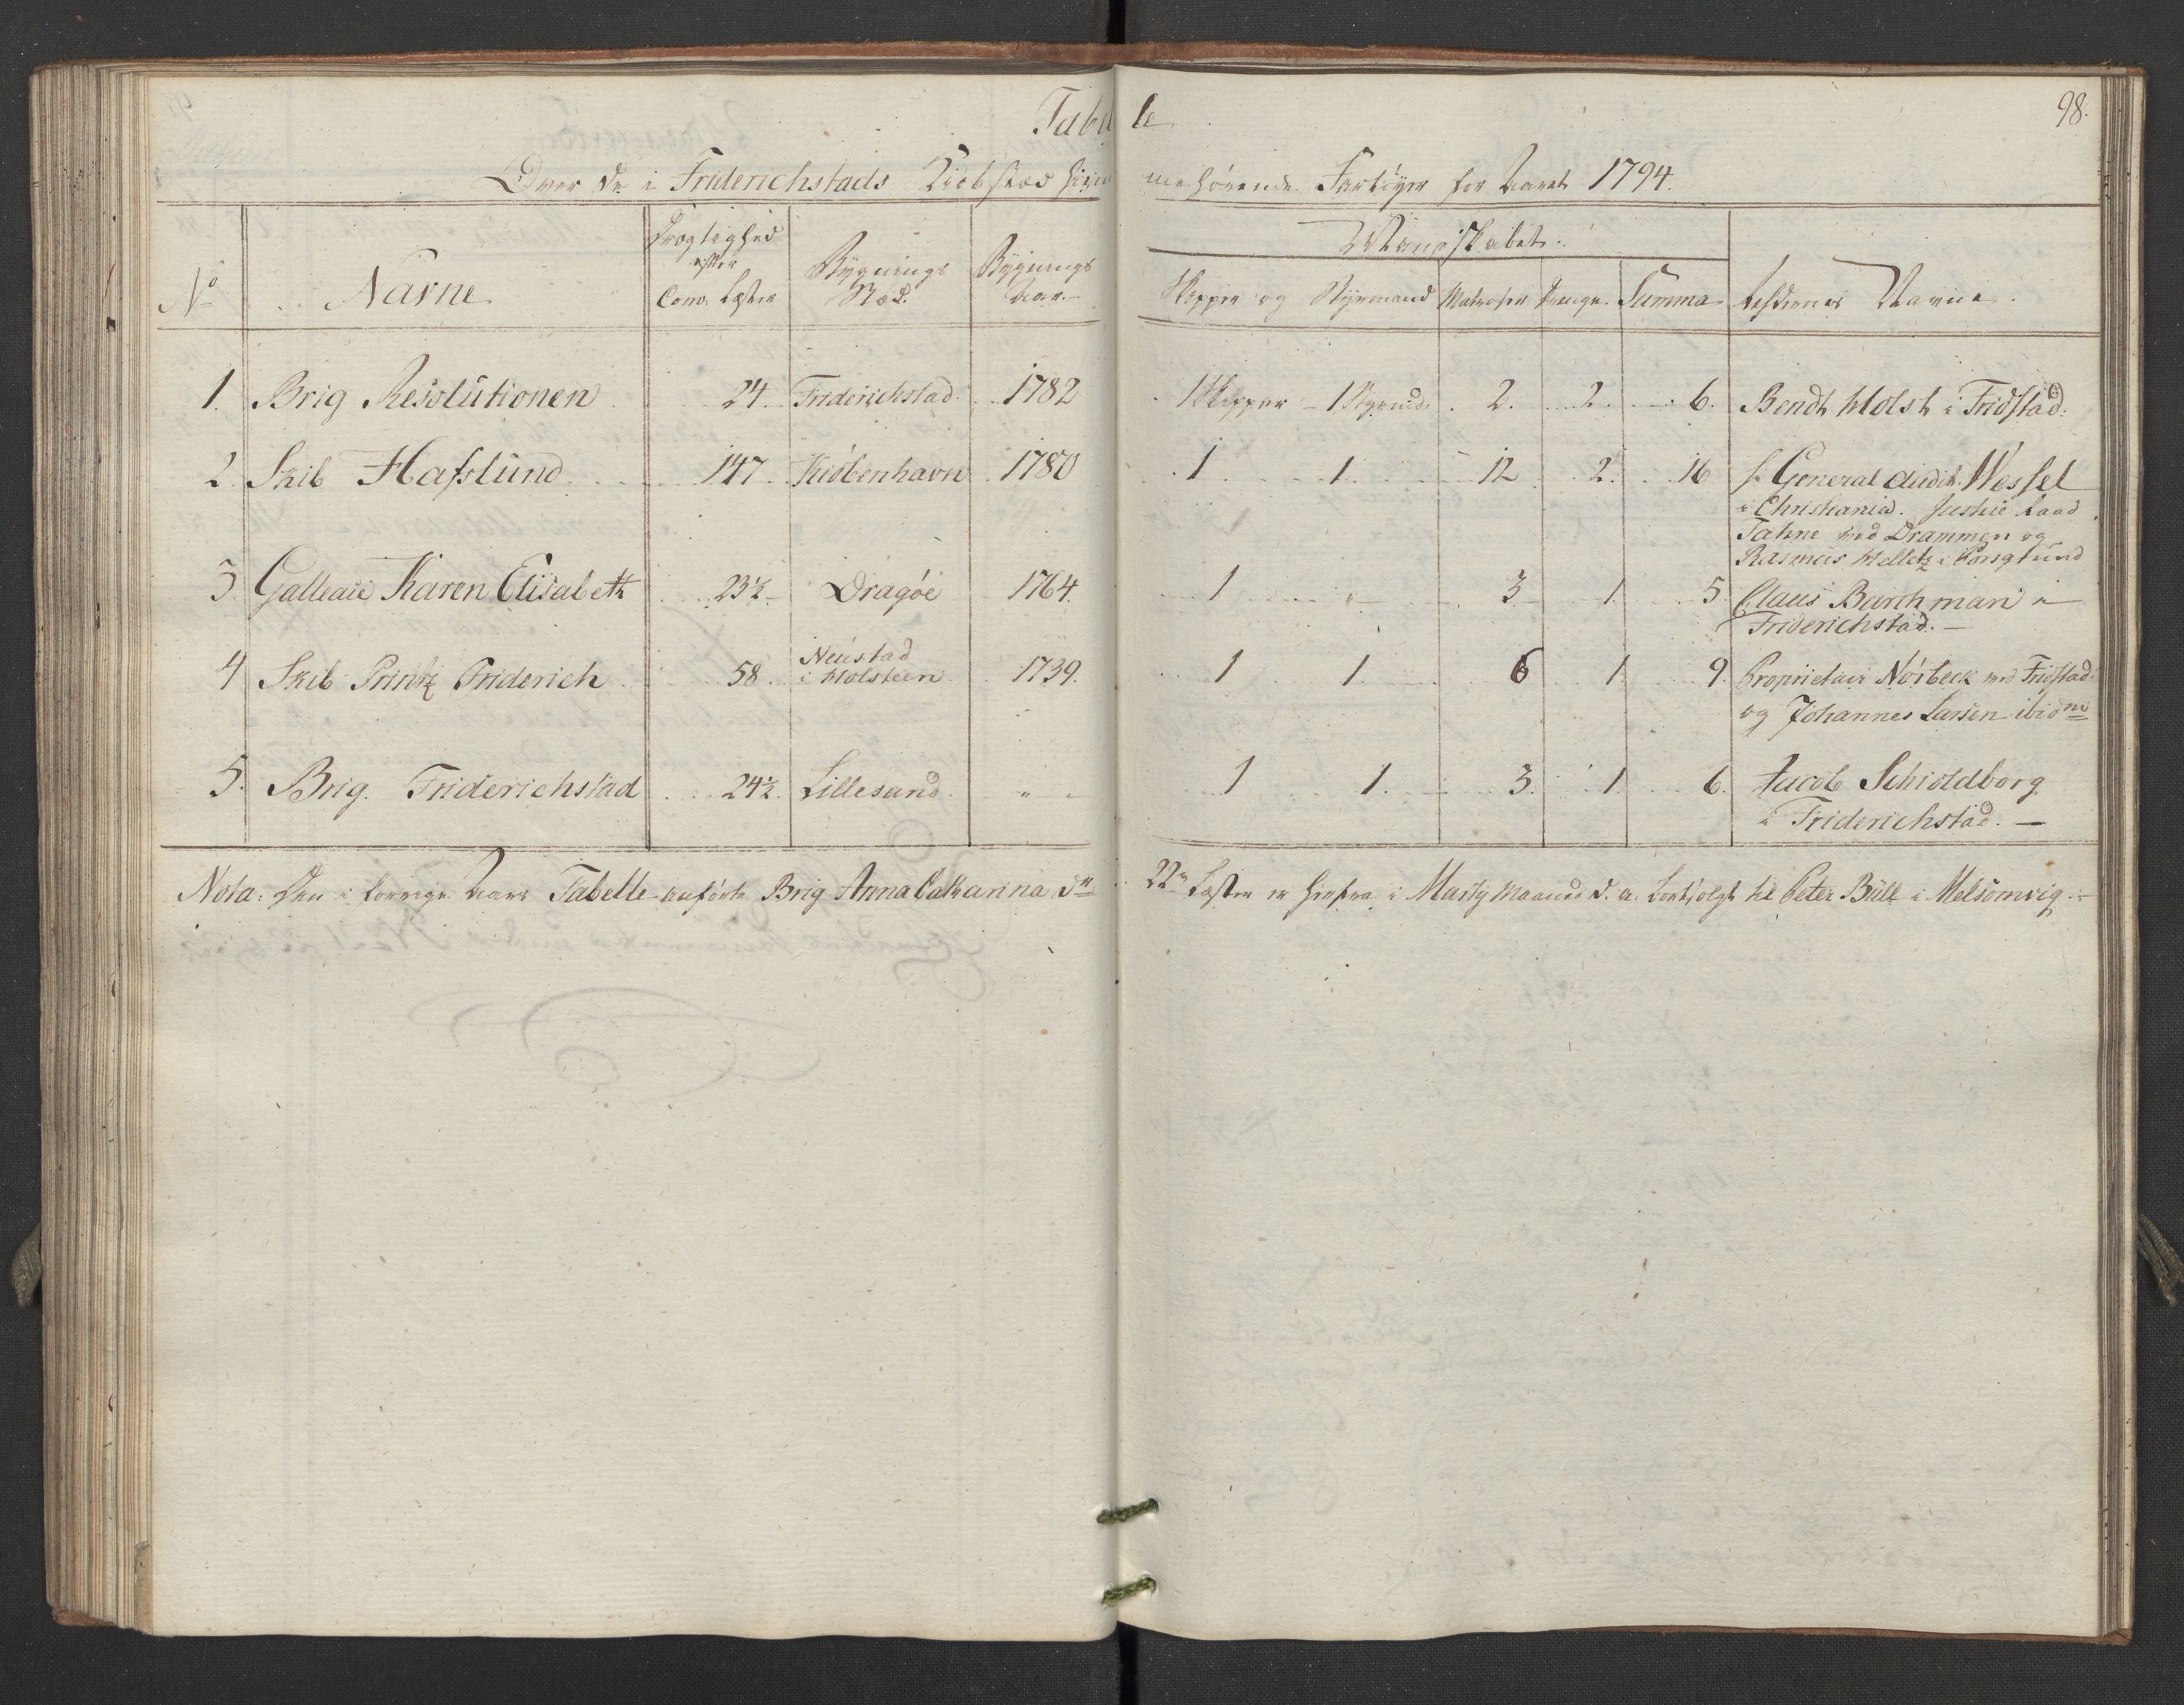 98.
Tabelle
Over de i Friderichstads Kiöbstæd hiemmehörende Fartöyer for Aaret 1794.
Mandskabet.
No Navne Drægtighed efter Com. Læster Bygnings Stæd. Bygnings Aar. Skipper og Styrmand Matroser Drenge. Summa Redernes Navne.
1. Brig Resolutionen 24. Friderichstad. 1782 1 Skipper 1 Styrmd. 2. 2. 6. Bendt Holst i Fridstad.
2. Skib Hafslund 147. Kiöbenhavn 1780 1 1 12 2. 16 Hr General Audit. Wessel
i Christiania. Justice Raad
Tahne ved Drammen og
Rasmus Melletz i
3. Galleaie Karen Elisabeth 23½ Dragöe 1764. 1 " 3 1 5 Claus Barchman i
Friderichstad.
4 Skib Printz Friderich 58. Neüstad i Holsteen 1739. 1 1 6 1 9. Proprietair Nörbeck ved Fridstad
og Johannes Larsen ibidm
5. Brig. Friderichstad 24½. Lillesand. " 1 1. 3. 1 6. Jacob Schioldborg
i Friderichstad.
Nota: Den i forrige Aars Tabelle anförte Brig Anna Catharina dr. 22 Læster er herfra i Marty Maaned d. a. bortsolgt til Peter Bull i Melsomvig.